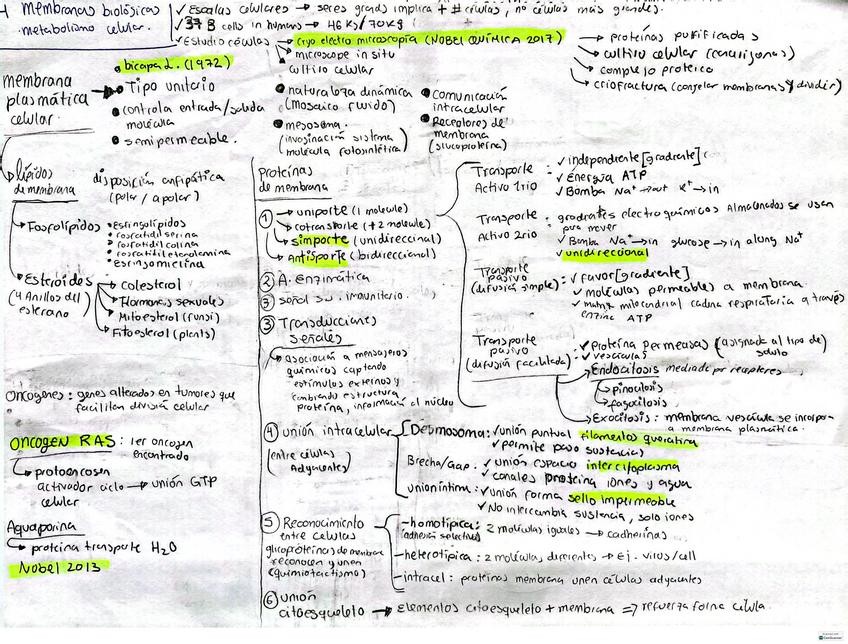 Membranas biológicas
metabolismo celular.
✓ Escalas celulares → seres grands implica + # células, no células más grandes.
✓ 37 B cells in humans → 46 Kg / 70 Kg
✓ Estudio células → cryo electro microscopía (NOBEL QUÍMICA 2017)
microscope in situ
cultivo celular
→ proteínas purificadas
cultivo celular
complejo proteico
criofractura (congelar membranas y dividir)
membrana
plasmática
celular.
bicapa L. (1972)
• Tipo unitario
• controla entrada/salida
molécula
• semipermeable.
• naturaleza dinámica
(mosaico fluido)
• mesosoma.
(invaginación sistema
molécula fotosintética)
• comunicación
intracelular
• Receptores de
membrana
(glucoproteína)
lípidos
de membrana
disposición anfipática
(polar / apolar)
Fosfolípidos
• esfingolípidos
• fosfatidil serina
• fosfatidil colina
• fosfatidil etanolamina
• esfingomielina
Esteroides
(4 Anillos del
esterano)
Colesterol
Hormonas sexuales
Mitoesterol (fungi)
Fitoesterol (plants)
Oncogenes: genes alterados en tumores que
facilitan división celular
ONCOGEN RAS: 1er oncogen
encontrado
protooncogen
activador ciclo → unión GTP
celular
Aquaporina
proteína transporte H2O
Nobel 2013
proteínas
de membrana
1 uniporte (1 molecule)
cotransporte (+2 molecule)
simporte (unidireccional)
Antisporte (bidireccional)
2 A. enzimática
2 señal su. imunitario.
3 Transducciones
señales
asociación a mensajeros
químicos captando
estímulos externos y
cambiando estructura
proteína, información al núcleo
4 unión intracelular
(entre células
Adyacentes)
Desmosoma: ✓ unión puntual filamentos queratina
✓ permite paso sustancias
Brecha/Gap: ✓ unión espacio intercitoplasma
✓ canales proteína iones y agua
unión íntima: ✓ unión forma sello impermeable
✓ No intercambia sustancia, solo iones
5 Reconocimiento
entre células
glicoproteínas de membrana
reconocen y unen
(quimiotactismo)
homotípica: 2 moléculas iguales → cadherinas
(adhesión selectiva)
heterotípica: 2 moléculas diferentes → Ej. virus/cell
intracel: proteínas membrana unen células adyacentes
6 unión
citoesqueleto → Elementos citoesqueleto + membrana => refuerza forma célula.
Transporte
Activo 1rio
✓ independiente [gradiente]
✓ Energía ATP
✓ Bomba Na+ → out K+ → in
Transporte
Activo 2rio
: gradientes electroquímicos Almacenados se usan
para mover
✓ Bomba Na+ → in glucose → in along Na+
✓ unidireccional
Transporte
pasivo
(difusión simple):
✓ Favor [gradiente]
✓ moléculas permeables a membrana.
✓ matriz mitocondrial cadena respiratoria a través
enzima ATP
Transporte
pasivo
(difusión facilitada)
✓ Proteína permeasas (asignada al tipo de
soluto)
✓ vesículas
Endocitosis mediada por receptores
pinocitosis
fagocitosis
Exocitosis: membrana vesícula se incorpora
a membrana plasmática.